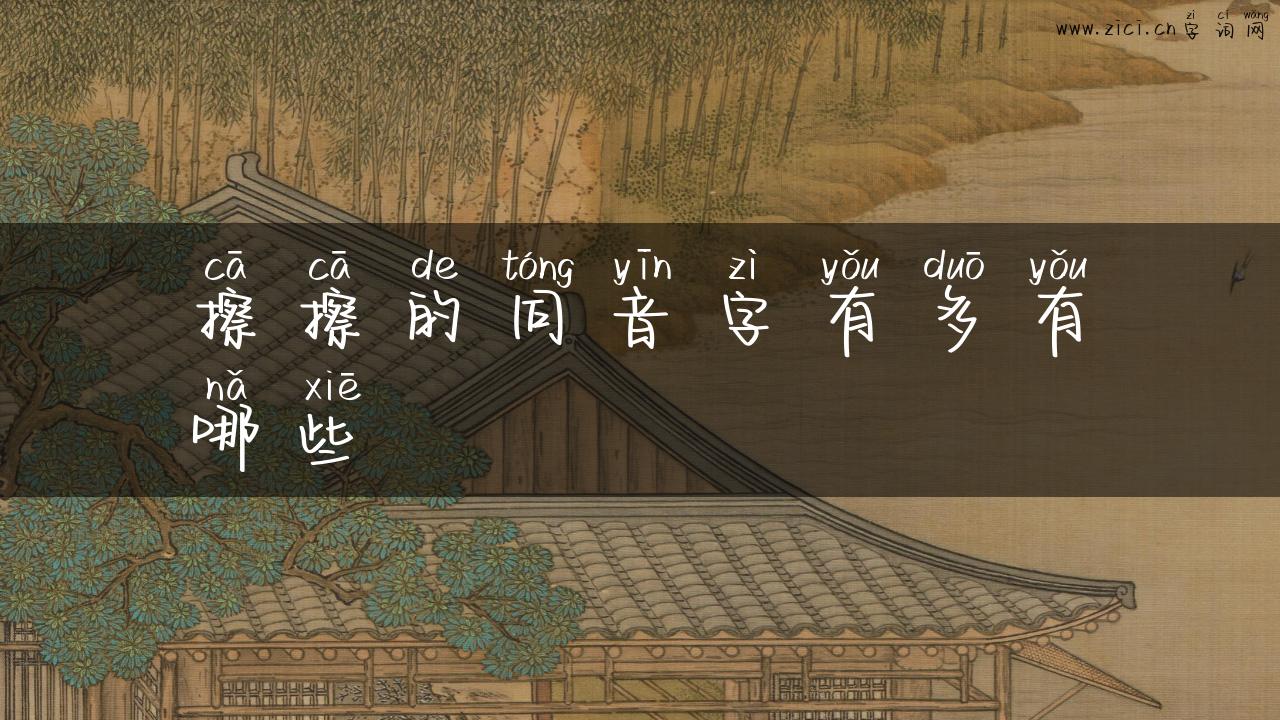 zì cí wǎng
www.zici.cn字词网
cā cā de tóng yīn zì yǒu duō yǒu
擦擦的同音字有多有
nǎ xiē
哪些